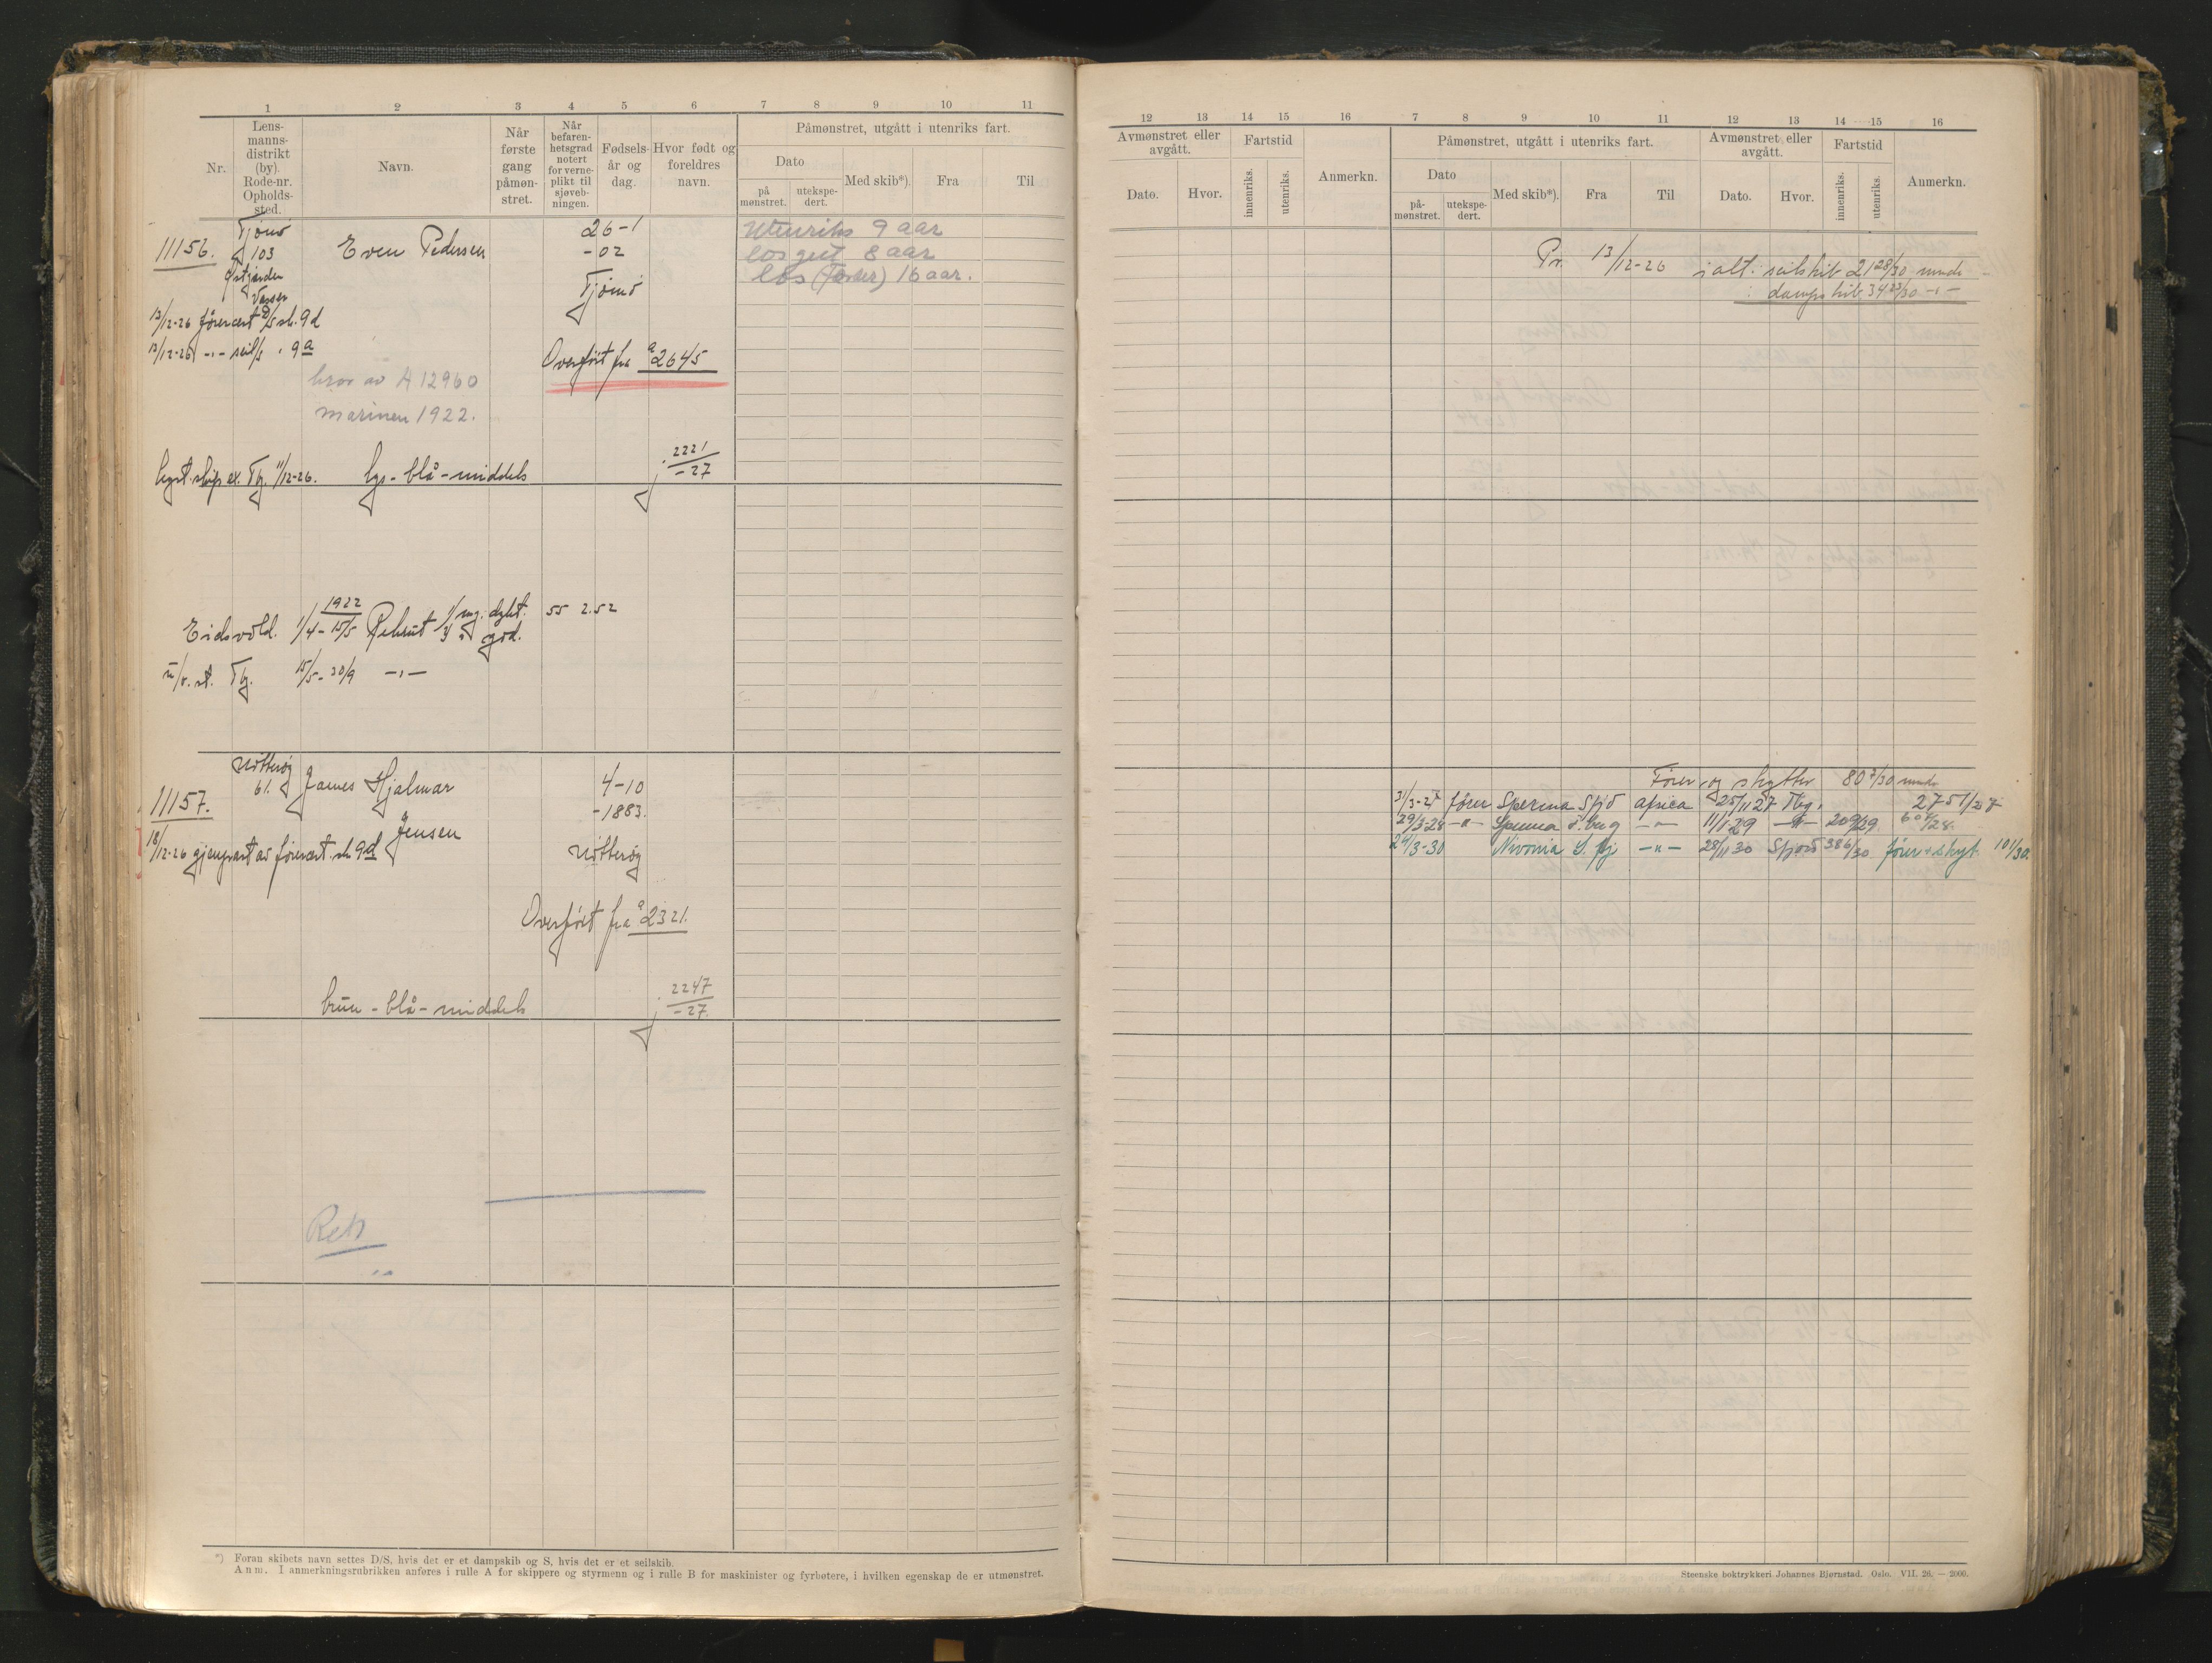 1 2 3 4 5 6 7 8 9 10 11
Nr.
Lens-
manns-
distrikt
(by).
Rode-nr.
Opholds-
sted.
Navn.
Når
første
gang
påmøn-
stret.
Når
befaren-
hetsgrad
notert
for verne-
plikt til
sjøveb-
ningen.
Fødsels-
år og
dag.
Hvor født og
foreldres
navn.
Påmønstret, utgått i utenriks fart.
Dato
på
mønstret.
utekspe-
dert.
Med skib*).
Fra
Til
Tjømö
11156. 103 Even Pedersen
Østgården
Vasser
26-1
-02
Tjømö
Utenriks 9 aar
losgut 8 aar
los (Færder) 16 aar.
13/12-26 förercert D/S sk. 9d
13/12-26 -"- seil/s " 9a
Overfört fra a 2645
bror av A 12960
marinen 1922.
Lyst. skip ex. Tbg. 11/12-26. lys - blå - middels
j. 2221
-27
1922
Eidsvold. 1/4 - 15/5 Rekrut 1/ mg. dykt. 55 2.52
3/ " god.
u/v. st. Tbg. 15/5 - 30/9 -"-
Nötteröy
61.
11157. James Hjalmar
Jensen
4-10
-1883.
Nötteröy
18/12-26 gjenpart av förercert. sk 9d
Overfört fra a 2321.
brun - blå - middels
j. 2247
-27.
*) Foran skibets navn settes D/S, hvis det er et dampskib og S, hvis det er et seilskib.
Anm. I anmerkningsrubrikken anføres i rulle A for skippere og styrmenn og i rulle B for maskinister og fyrbøtere, i hvilken egenskap de er utmønstret.
12 13 14 15 16 7 8 9 10 11 12 13 14 15 16
Avmønstret eller
avgått.
Dato.
Hvor.
Fartstid
innenriks.
utenriks.
Anmerkn.
Påmønstret, utgått i utenriks fart.
Dato
på-
mønstret.
utekspe-
dert.
Med skib*).
Fra
Til
Avmønstret eller
avgått.
Dato.
Hvor.
Fartstid
innenriks.
utenriks.
Anmerkn.
Pr. 13/12-26 ialt: seilskib 21 28/30 mnd.
: dampskib 34 23/30 -"-
Förer og skytter 80 3/30 mnd.
31/3-27 förer Sperma Sfjd Africa 25/11 27 Tbg. 2751/27
29/3-28 -"- Sperma -"- 11/1-29 -"- 209/29 607/28.
24/3-30 Nivonia S.fj -"- 28/11 30 Sfjord 386/30 förer + skyt. 101/30.
Steenske boktrykkeri Johannes Bjørnstad. Oslo. VII. 26. — 2000.